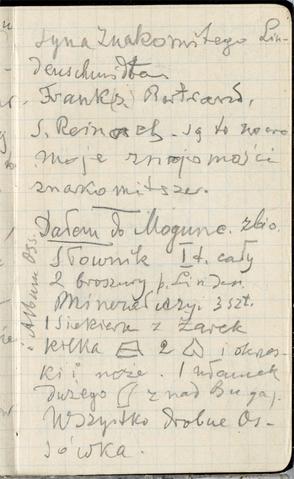 syna znakomitego Lin-
denschmidta
Franks, Bertrand,
S. Reinach - są to nowe
moje znajomości
znakomitsze.
Dałem do Mogunc. zbio.
Słownik I t. cały
2 broszury p. Linden
Minerały. 3 szt.
1 Siekiera z Żarek
Kilka 2 i okrze-
ski i noże. 1 ułamek
dużego z nad Bugaj.
Wszystko drobne Os-
sówka.
i Album Oss.